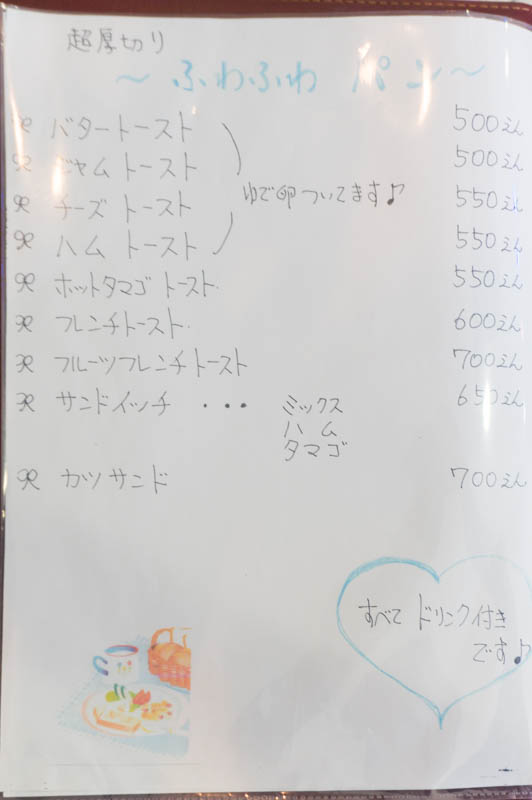 超厚切り
～ふわふわ パン～
バタートースト 500えん
ジャムトースト 500えん
ゆで卵ついてます♪
チーズトースト 550えん
ハムトースト 550えん
ホットタマゴトースト 550えん
フレンチトースト 600えん
フルーツフレンチトースト 700えん
サンドイッチ ・・・ ミックス 650えん
ハム
タマゴ
カツサンド 700えん
すべてドリンク付き
です♪